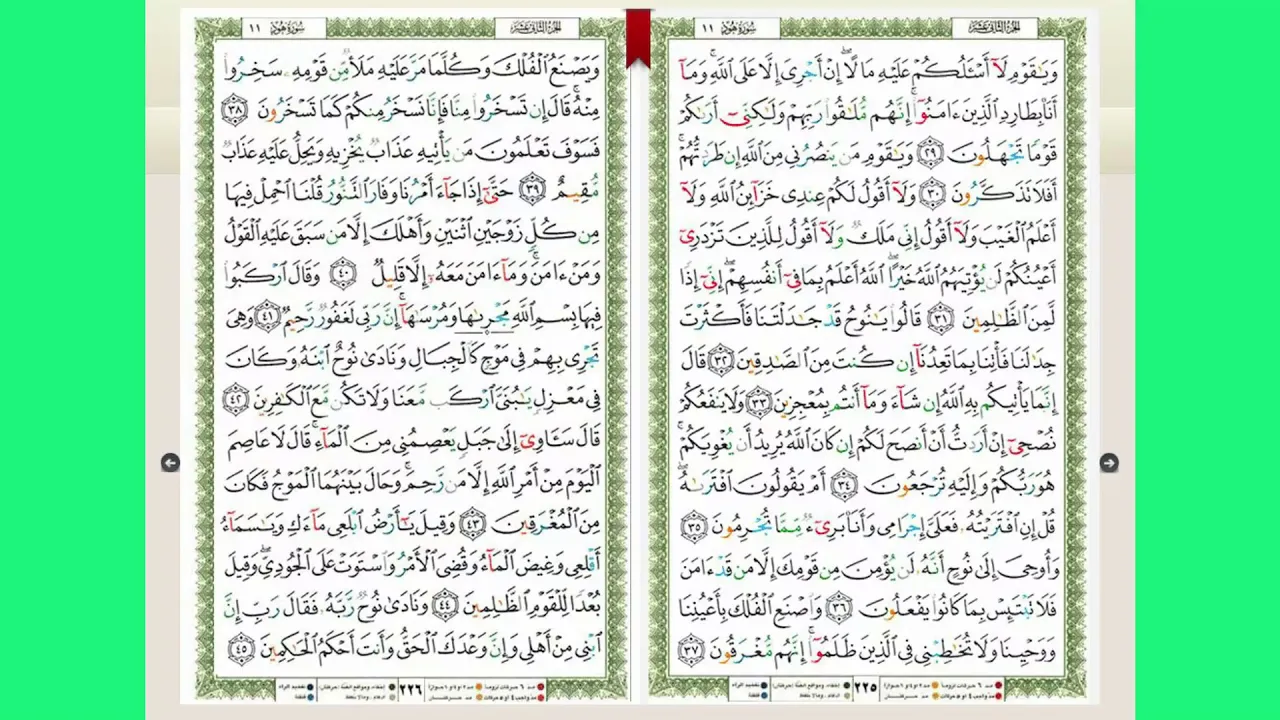 سُورَةُ هُودٍ ١١
الجزء الثاني عشر
وَيَٰقَوۡمِ لَآ أَسۡـَٔلُكُمۡ عَلَيۡهِ مَالًاۖ إِنۡ أَجۡرِيَ إِلَّا عَلَى ٱللَّهِۚ وَمَآ
أَنَا۠ بِطَارِدِ ٱلَّذِينَ ءَامَنُوٓاْۚ إِنَّهُم مُّلَٰقُواْ رَبِّهِمۡ وَلَٰكِنِّيٓ أَرَىٰكُمۡ
قَوۡمٗا تَجۡهَلُونَ ٢٩ وَيَٰقَوۡمِ مَن يَنصُرُنِي مِنَ ٱللَّهِ إِن طَرَدتُّهُمۡۚ
أَفَلَا تَذَكَّرُونَ ٣٠ وَلَآ أَقُولُ لَكُمۡ عِندِي خَزَآئِنُ ٱللَّهِ وَلَآ
أَعۡلَمُ ٱلۡغَيۡبَ وَلَآ أَقُولُ إِنِّي مَلَكٞ وَلَآ أَقُولُ لِلَّذِينَ تَزۡدَرِيٓ
أَعۡيُنُكُمۡ لَن يُؤۡتِيَهُمُ ٱللَّهُ خَيۡرًاۖ ٱللَّهُ أَعۡلَمُ بِمَا فِيٓ أَنفُسِهِمۡ إِنِّيٓ إِذٗا
لَّمِنَ ٱلظَّٰلِمِينَ ٣١ قَالُواْ يَٰنُوحُ قَدۡ جَٰدَلۡتَنَا فَأَكۡثَرۡتَ
جِدَٰلَنَا فَأۡتِنَا بِمَا تَعِدُنَآ إِن كُنتَ مِنَ ٱلصَّٰدِقِينَ ٣٢ قَالَ
إِنَّمَا يَأۡتِيكُم بِهِ ٱللَّهُ إِن شَآءَ وَمَآ أَنتُم بِمُعۡجِزِينَ ٣٣ وَلَا يَنفَعُكُمۡ
نُصۡحِيٓ إِنۡ أَرَدتُّ أَنۡ أَنصَحَ لَكُمۡ إِن كَانَ ٱللَّهُ يُرِيدُ أَن يُغۡوِيَكُمۡۚ
هُوَ رَبُّكُمۡ وَإِلَيۡهِ تُرۡجَعُونَ ٣٤ أَمۡ يَقُولُونَ ٱفۡتَرَىٰهُۖ
قُلۡ إِنِ ٱفۡتَرَيۡتُهُۥ فَعَلَيَّ إِجۡرَامِي وَأَنَا۠ بَرِيٓءٞ مِّمَّا تُجۡرِمُونَ ٣٥
وَأُوحِيَ إِلَىٰ نُوحٍ أَنَّهُۥ لَن يُؤۡمِنَ مِن قَوۡمِكَ إِلَّا مَن قَدۡ ءَامَنَ
فَلَا تَبۡتَئِسۡ بِمَا كَانُواْ يَفۡعَلُونَ ٣٦ وَٱصۡنَعِ ٱلۡفُلۡكَ بِأَعۡيُنِنَا
وَوَحۡيِنَا وَلَا تُخَٰطِبۡنِي فِي ٱلَّذِينَ ظَلَمُوٓاْ إِنَّهُم مُّغۡرَقُونَ ٣٧
٢٢٥
سُورَةُ هُودٍ ١١
الجزء الثاني عشر
وَيَصۡنَعُ ٱلۡفُلۡكَ وَكُلَّمَا مَرَّ عَلَيۡهِ مَلَأٞ مِّن قَوۡمِهِۦ سَخِرُواْ
مِنۡهُۚ قَالَ إِن تَسۡخَرُواْ مِنَّا فَإِنَّا نَسۡخَرُ مِنكُمۡ كَمَا تَسۡخَرُونَ ٣٨
فَسَوۡفَ تَعۡلَمُونَ مَن يَأۡتِيهِ عَذَابٞ يُخۡزِيهِ وَيَحِلُّ عَلَيۡهِ عَذَابٞ
مُّقِيمٌ ٣٩ حَتَّىٰٓ إِذَا جَآءَ أَمۡرُنَا وَفَارَ ٱلتَّنُّورُ قُلۡنَا ٱحۡمِلۡ فِيهَا
مِن كُلّٖ زَوۡجَيۡنِ ٱثۡنَيۡنِ وَأَهۡلَكَ إِلَّا مَن سَبَقَ عَلَيۡهِ ٱلۡقَوۡلُ
وَمَنۡ ءَامَنَۚ وَمَآ ءَامَنَ مَعَهُۥٓ إِلَّا قَلِيلٞ ٤٠ وَقَالَ ٱرۡكَبُواْ
فِيهَا بِسۡمِ ٱللَّهِ مَجۡر۪ىٰهَا وَمُرۡسَىٰهَآۚ إِنَّ رَبِّي لَغَفُورٞ رَّحِيمٞ ٤١ وَهِيَ
تَجۡرِي بِهِمۡ فِي مَوۡجٖ كَٱلۡجِبَالِ وَنَادَىٰ نُوحٌ ٱبۡنَهُۥ وَكَانَ
فِي مَعۡزِلٖ يَٰبُنَيَّ ٱرۡكَب مَّعَنَا وَلَا تَكُن مَّعَ ٱلۡكَٰفِرِينَ ٤٢
قَالَ سَـَٔاوِيٓ إِلَىٰ جَبَلٖ يَعۡصِمُنِي مِنَ ٱلۡمَآءِۚ قَالَ لَا عَاصِمَ
ٱلۡيَوۡمَ مِنۡ أَمۡرِ ٱللَّهِ إِلَّا مَن رَّحِمَۚ وَحَالَ بَيۡنَهُمَا ٱلۡمَوۡجُ فَكَانَ
مِنَ ٱلۡمُغۡرَقِينَ ٤٣ وَقِيلَ يَٰٓأَرۡضُ ٱبۡلَعِي مَآءَكِ وَيَٰسَمَآءُ
أَقۡلِعِي وَغِيضَ ٱلۡمَآءُ وَقُضِيَ ٱلۡأَمۡرُ وَٱسۡتَوَتۡ عَلَى ٱلۡجُودِيِّۖ وَقِيلَ
بُعۡدٗا لِّلۡقَوۡمِ ٱلظَّٰلِمِينَ ٤٤ وَنَادَىٰ نُوحٞ رَّبَّهُۥ فَقَالَ رَبِّ إِنَّ
ٱبۡنِي مِنۡ أَهۡلِي وَإِنَّ وَعۡدَكَ ٱلۡحَقُّ وَأَنتَ أَحۡكَمُ ٱلۡحَٰكِمِينَ ٤٥
٢٢٦